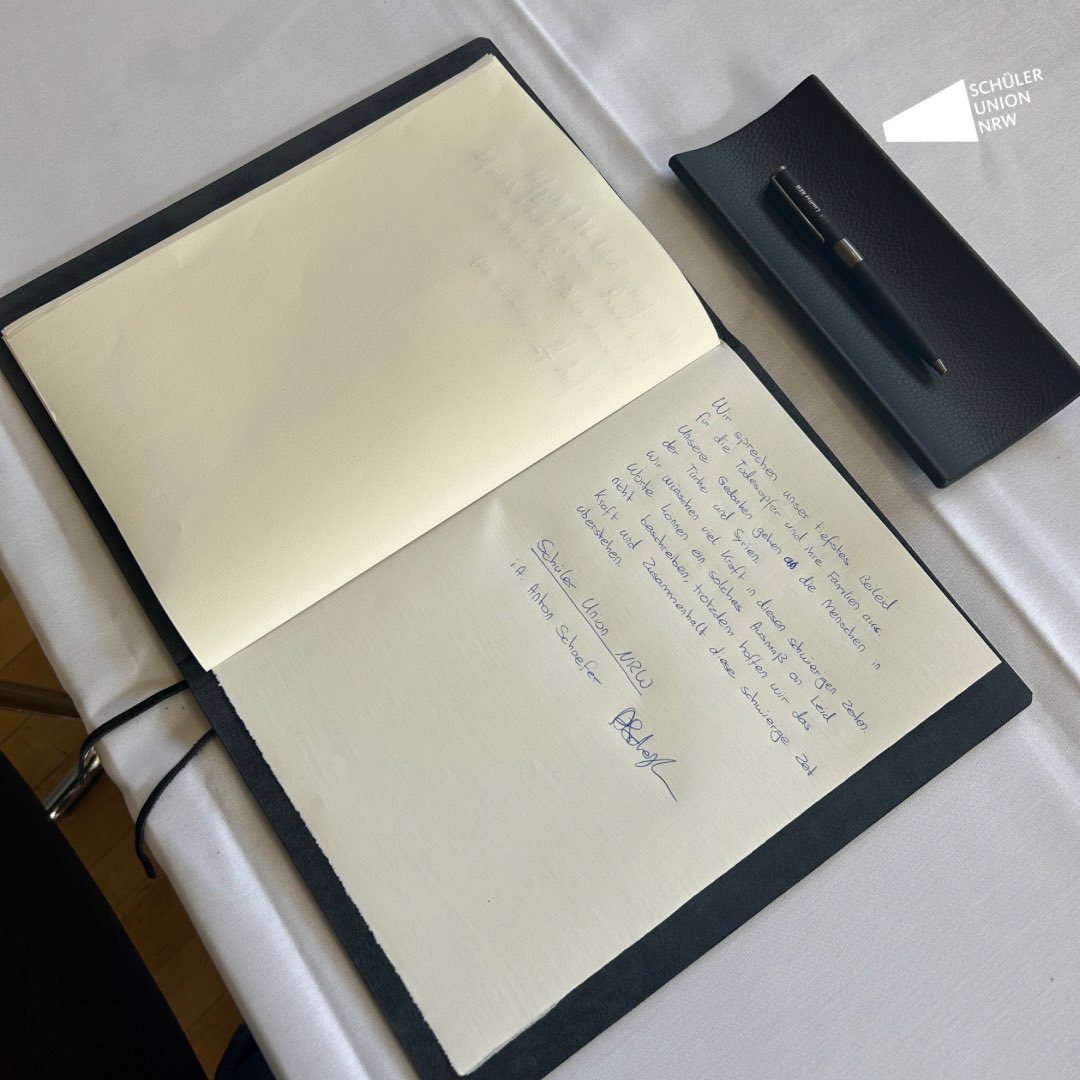 SCHÜLER
UNION
NRW
Wir sprechen unser tiefstes Beileid
für die Todesopfer und ihre Familien aus.
Unsere Gedanken gehen an die Menschen in
der Türkei und Syrien.
Wir wünschen viel Kraft in diesen schwierigen Zeiten.
Worte können ein solches Ausmaß an Leid
nicht beschreiben, trotzdem hoffen wir das
Kraft und Zusammenhalt diese schwierige Zeit
überstehen.
Schüler Union NRW
i.A. Anton Schaefer